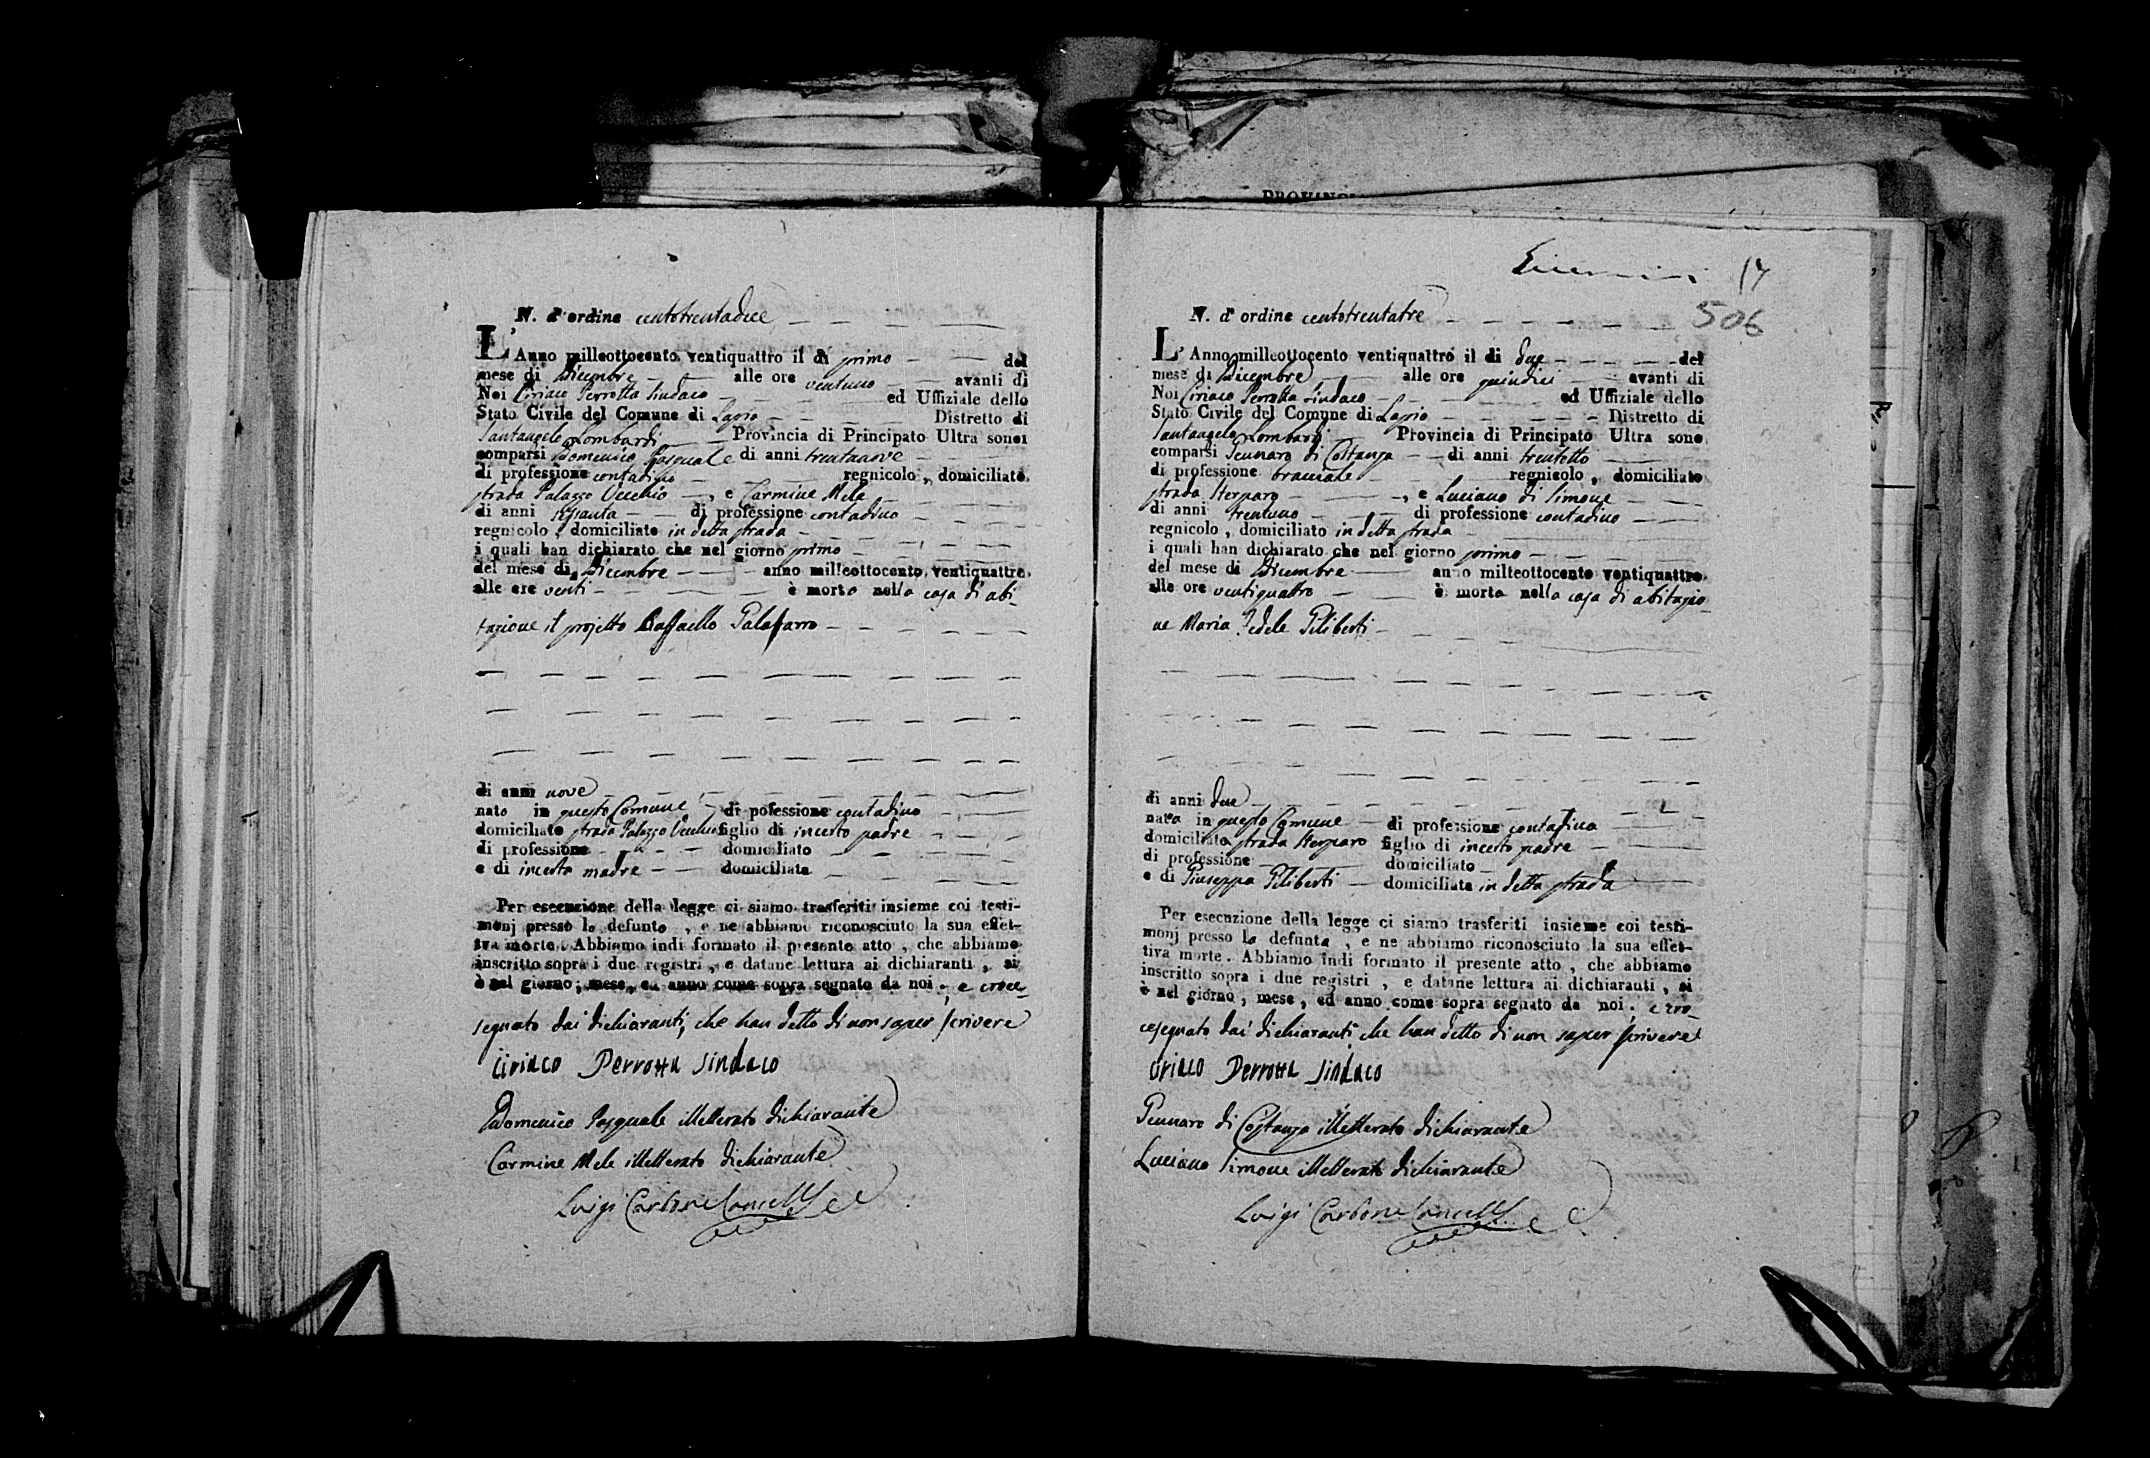 PROVINCI
N. d'ordine centotrentadue
L'Anno milleottocento ventiquattro il di primo del
mese di Dicembre alle ore ventuno avanti di
Noi Ciriaco Perrotta Sindaco ed Uffiziale dello
Stato Civile del Comune di Lapio Distretto di
Santangelo Lombardi Provincia di Principato Ultra sono
comparsi Domenico Pasquale di anni trentanove
di professione contadino regnicolo, domiciliato
strada Palazzo Vecchio, e Carmine Mele
di anni sessanta di professione contadino
regnicolo, domiciliato in detta strada
i quali han dichiarato che nel giorno primo
del mese di Dicembre anno milleottocento ventiquattro,
alle ore venti è morto nella casa di abi-
tazione il projetto Raffaello
di anni nove
nato in questo Comune di pofessione contadino
domiciliato strada Palazzo Vecchio figlio di incerto padre
di professione domiciliato
e di incerta madre domiciliata
Per esecuzione della legge ci siamo trasferiti insieme coi testi-
monj presso lo defunto, e ne abbiamo riconosciuto la sua effet-
tva morte. Abbiamo indi formato il presente atto, che abbiamo
inscritto sopra i due registri, e datane lettura ai dichiaranti, si
è nel giorno, mese, ed anno come sopra segnato da noi; e croce-
segnato dai dichiaranti, che han detto di non saper scrivere
Ciriaco Perrotta Sindaco
Domenico Pasquale illetterato dichiarante
Carmine Mele illetterato dichiarante
Luigi Carbone Cancell
17
506
N. d'ordine centotrentatre
L'Anno milleottocento ventiquattro il di due del
mese di Dicembre alle ore quindici avanti di
Noi Ciriaco Perrotta Sindaco ed Uffiziale dello
Stato Civile del Comune di Lapio Distretto di
Santangelo Lombardi Provincia di Principato Ultra sono
comparsi Gennaro di Costanzo di anni trentotto
di professione bracciale regnicolo, domiciliato
strada Sterparo, e Luciano di Simone
di anni trentuno di professione contadino
regnicolo, domiciliato in detta strada
i quali han dichiarato che nel giorno primo
del mese di Dicembre anno milleottocento ventiquattro,
alle ore ventiquattro è morta nella casa di abitazio-
ne Maria Fedele Piliberti
di anni due
nata in questo Comune di professione contadina
domiciliata strada Sterparo figlio di incerto padre
di professione domiciliato
e di Giuseppa Piliberti domiciliata in detta strada
Per esecuzione della legge ci siamo trasferiti insieme coi testi-
monj presso la defunta, e ne abbiamo riconosciuto la sua effet-
tiva morte. Abbiamo indi formato il presente atto, che abbiamo
inscritto sopra i due registri, e datane lettura ai dichiaranti, si
è nel giorno, mese, ed anno come sopra segnato da noi. e cro-
cesegnato dai dichiaranti che han detto di non saper scrivere
Ciriaco Perrotta Sindaco
Gennaro di Costanzo illetterato dichiarante
Luciano Simone illetterato dichiarante
Luigi Carbone Cancell